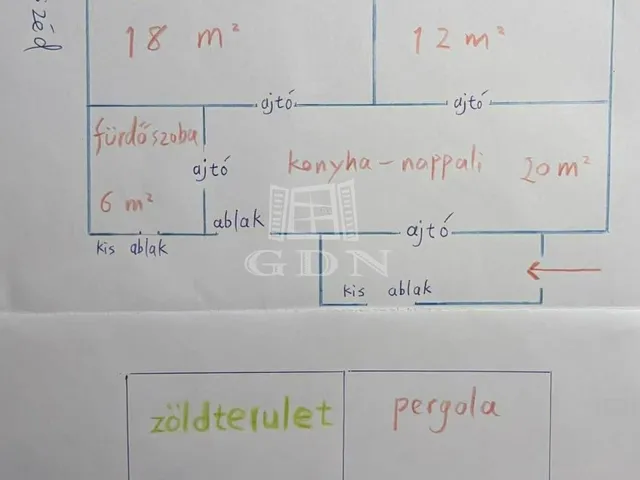 18 m²
12 m²
ajtó
ajtó
fürdőszoba
ajtó
konyha - nappali
20 m²
6 m²
ablak
ajtó
kis ablak
GDN
kis ablak
zöldterulet
pergola